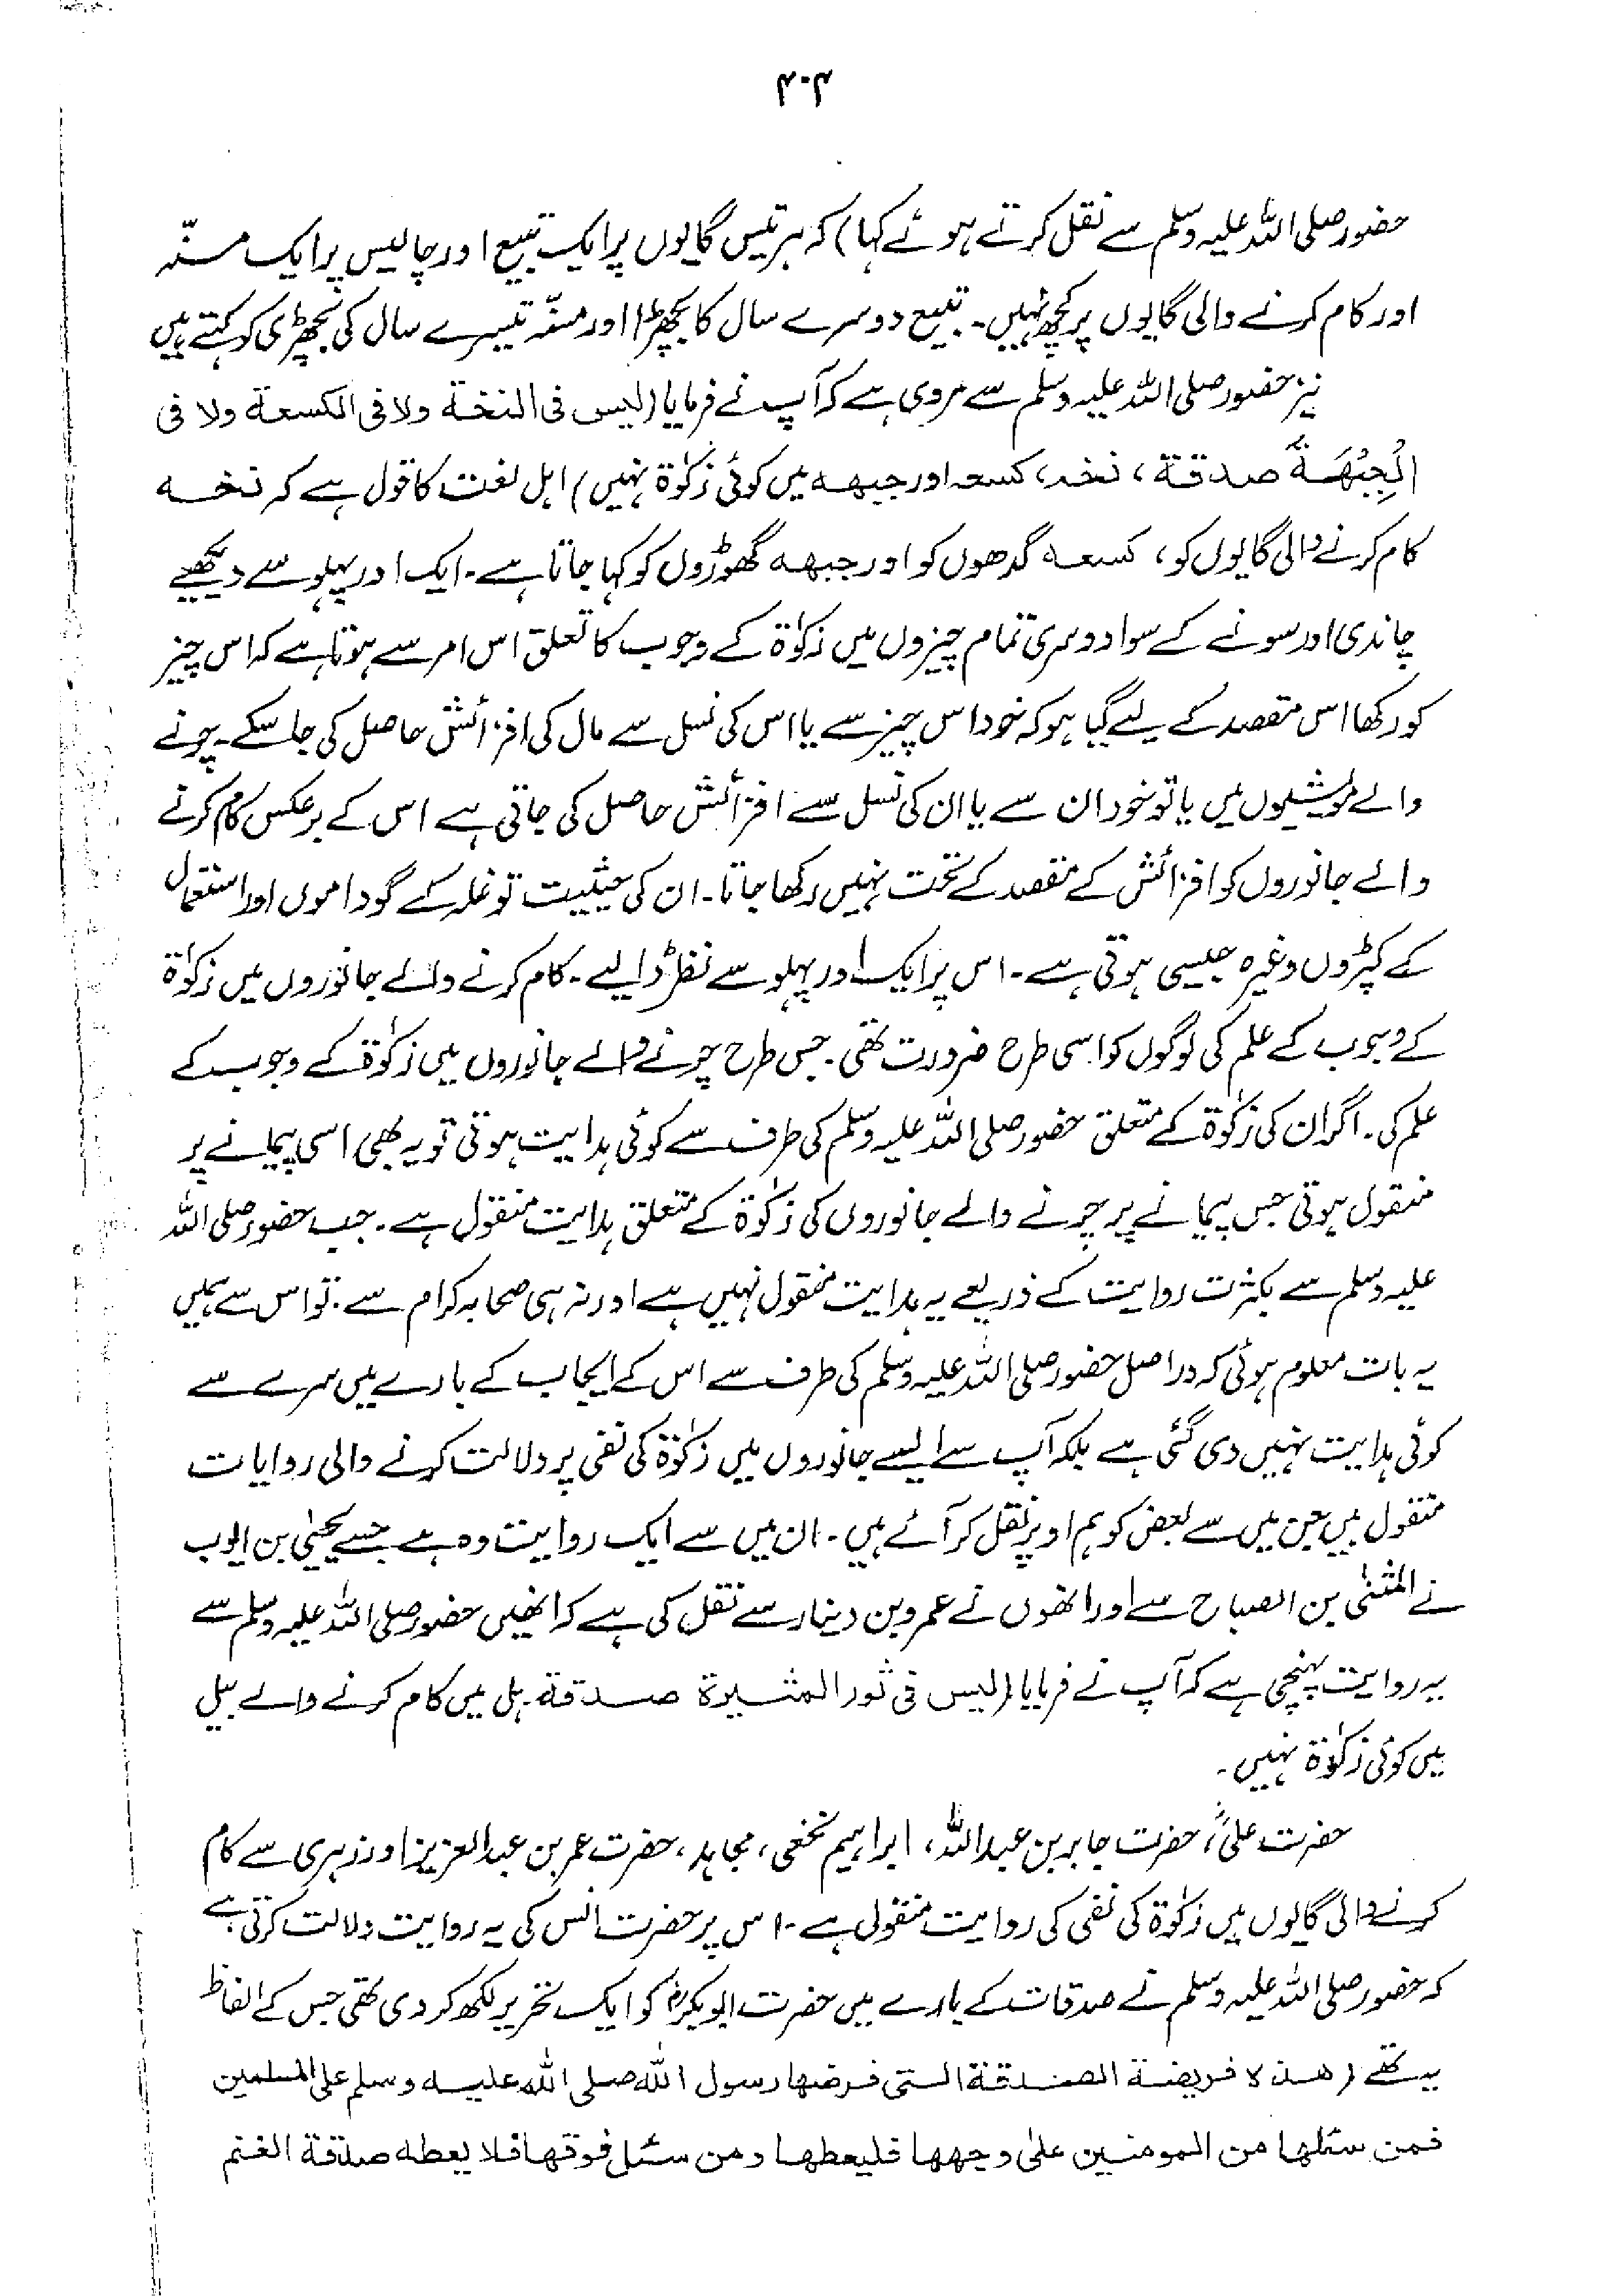 ۴۰۴
حضور صلی اللہ علیہ وسلم سے نقل کرتے ہوئے کہا) کہ ہر تیس گایوں پر ایک تبیع اور چالیس پر ایک مسنّہ
اور کام کرنے والی گایوں پر کچھ نہیں۔ تبیع دوسرے سال کا بچھڑا اور مسنّہ تیسرے سال کی بچھڑی کو کہتے ہیں
نیز حضور صلی اللہ علیہ وسلم سے مروی ہے کہ آپ نے فرمایا (لیس فی النخة ولا فی الکسعة ولا فی
الْجَبْهَةُ صدقة، نخہ، کسعہ اور جبہہ میں کوئی زکوٰۃ نہیں) اہل لغت کا قول ہے کہ نخہ
کام کرنے والی گایوں کو، کسعہ گدھوں کو اور جبہہ گھوڑوں کو کہا جاتا ہے۔ ایک اور پہلو سے دیکھیے
چاندی اور سونے کے سوا دوسری تمام چیزوں میں زکوٰۃ کے وجوب کا تعلق اس امر سے ہوتا ہے کہ اس چیز
کو رکھا اس مقصد کے لیے گیا ہو کہ خود اس چیز سے یا اس کی نسل سے مال کی افزائش حاصل کی جا سکے۔ چرنے
والے مویشیوں میں یا تو خود ان سے یا ان کی نسل سے افزائش حاصل کی جاتی ہے اس کے برعکس کام کرنے
والے جانوروں کو افزائش کے مقصد کے تحت نہیں رکھا جاتا۔ ان کی حیثیت تو غلہ کے گوداموں اور استعمال
کے کپڑوں وغیرہ جیسی ہوتی ہے۔ اس پر ایک اور پہلو سے نظر ڈالیے۔ کام کرنے والے جانوروں میں زکوٰۃ
کے وجوب کے علم کی لوگوں کو اسی طرح ضرورت تھی۔ جس طرح چرنے والے جانوروں میں زکوٰۃ کے وجوب کے
علم کی۔ اگر ان کی زکوٰۃ کے متعلق حضور صلی اللہ علیہ وسلم کی طرف سے کوئی ہدایت ہوتی تو یہ بھی اسی پیمانے پر
منقول ہوتی جس پیمانے پر چرنے والے جانوروں کی زکوٰۃ کے متعلق ہدایت منقول ہے۔ جب حضور صلی اللہ
علیہ وسلم سے بکثرت روایت کے ذریعے یہ ہدایت منقول نہیں ہے اور نہ ہی صحابہ کرام سے۔ تو اس سے ہمیں
یہ بات معلوم ہوئی کہ دراصل حضور صلی اللہ علیہ وسلم کی طرف سے اس کے ایجاب کے بارے میں سرے سے
کوئی ہدایت نہیں دی گئی ہے بلکہ آپ سے ایسے جانوروں میں زکوٰۃ کی نفی پر دلالت کرنے والی روایات
منقول ہیں جن میں سے بعض کو ہم اوپر نقل کر آئے ہیں۔ ان میں سے ایک روایت وہ ہے جسے یحییٰ بن ایوب
نے المثنیٰ بن الصباح سے اور انھوں نے عمرو بن دینار سے نقل کی ہے کہ انھیں حضور صلی اللہ علیہ وسلم سے
یہ روایت پہنچی ہے کہ آپ نے فرمایا (لیس فی ثور المثیرة صدقة۔ ہل میں کام کرنے والے بیل
میں کوئی زکوٰۃ نہیں۔
حضرت علیؓ، حضرت جابر بن عبداللہؓ، ابراہیم نخعی، مجاہد، حضرت عمر بن عبدالعزیز اور زہری سے کام
کرنے والی گایوں میں زکوٰۃ کی نفی کی روایت منقول ہے۔ اس پر حضرت انس کی یہ روایت دلالت کرتی ہے
کہ حضور صلی اللہ علیہ وسلم نے صدقات کے بارے میں حضرت ابوبکرؓ کو ایک تحریر لکھ کر دی تھی جس کے الفاظ
یہ تھے (هذه فریضة الصدقة التی فرضها رسول الله صلی الله علیه وسلم علی المسلمین
فمن سئلها من المومنین علیٰ وجهها فلیعطها ومن سئل فوقها فلا یعطه صدقة الغنم